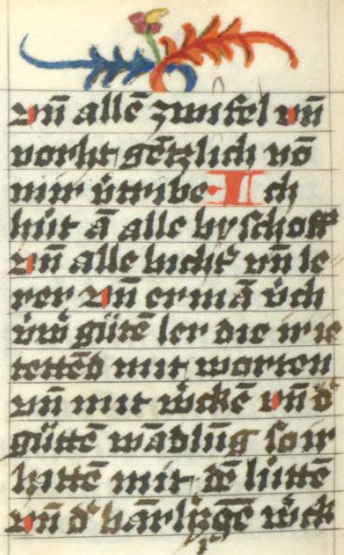 vn̄ allē zwifel vn̄
vorht gētzlich vō
mir v̾tribe Ich
hūt ā alle byschoff
vn̄ alle bicht᷑ vn̄ le
rer vn̄ ermā v́ch
v́w᷑ gūtē ler die ir
mit worten
vn̄ mit w᷑ckē vn̄ d᷑
gūttē wādlūg so ir
hattē mit dē lūttē
vn̄ d᷑ w᷑ck